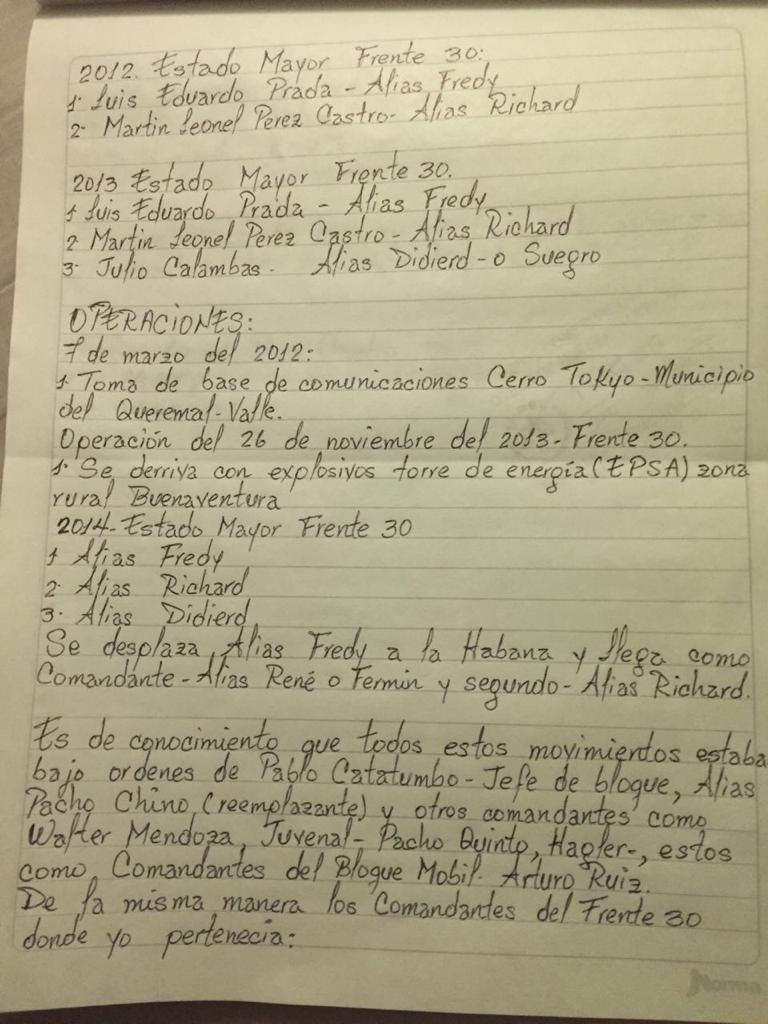 2012. Estado Mayor Frente 30:
1· Luis Eduardo Prada - Alias Fredy
2· Martin Leonel Perez Castro- Alias Richard
2013 Estado Mayor Frente 30.
1 Luis Eduardo Prada - Alias Fredy
2 Martin Leonel Perez Castro - Alias Richard
3· Julio Calambas. Alias Didierd - o Suegro
OPERACIONES:
7 de marzo del 2012:
1· Toma de base de comunicaciones Cerro Tokyo-Municipio
del Queremal-Valle.
Operación del 26 de noviembre del 2013- Frente 30.
1· Se derriva con explosivos torre de energía (EPSA) zona
rural Buenaventura
2014- Estado Mayor Frente 30
1 Alias Fredy
2· Alias Richard
3· Alias Didierd
Se desplaza Alias Fredy a la Habana y llega como
Comandante - Alias René o Fermin y segundo - Alias Richard.
Es de conocimiento que todos estos movimientos estaba
bajo ordenes de Pablo Catatumbo - Jefe de bloque, Alias
Pacho Chino (reemplazante) y otros comandantes como
Walter Mendoza, Juvenal- Pacho Quinto, Hagler-, estos
como Comandantes del Bloque Mobil. Arturo Ruiz.
De la misma manera los Comandantes del Frente 30
donde yo pertenecia:
Norma